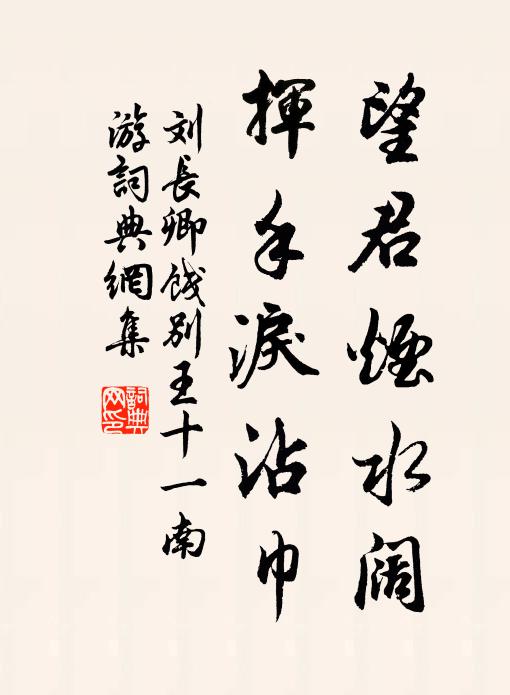 望君煙水阔
揮手淚沾巾
刘長卿餞别王十一南
游詞典網集
詞典
网印